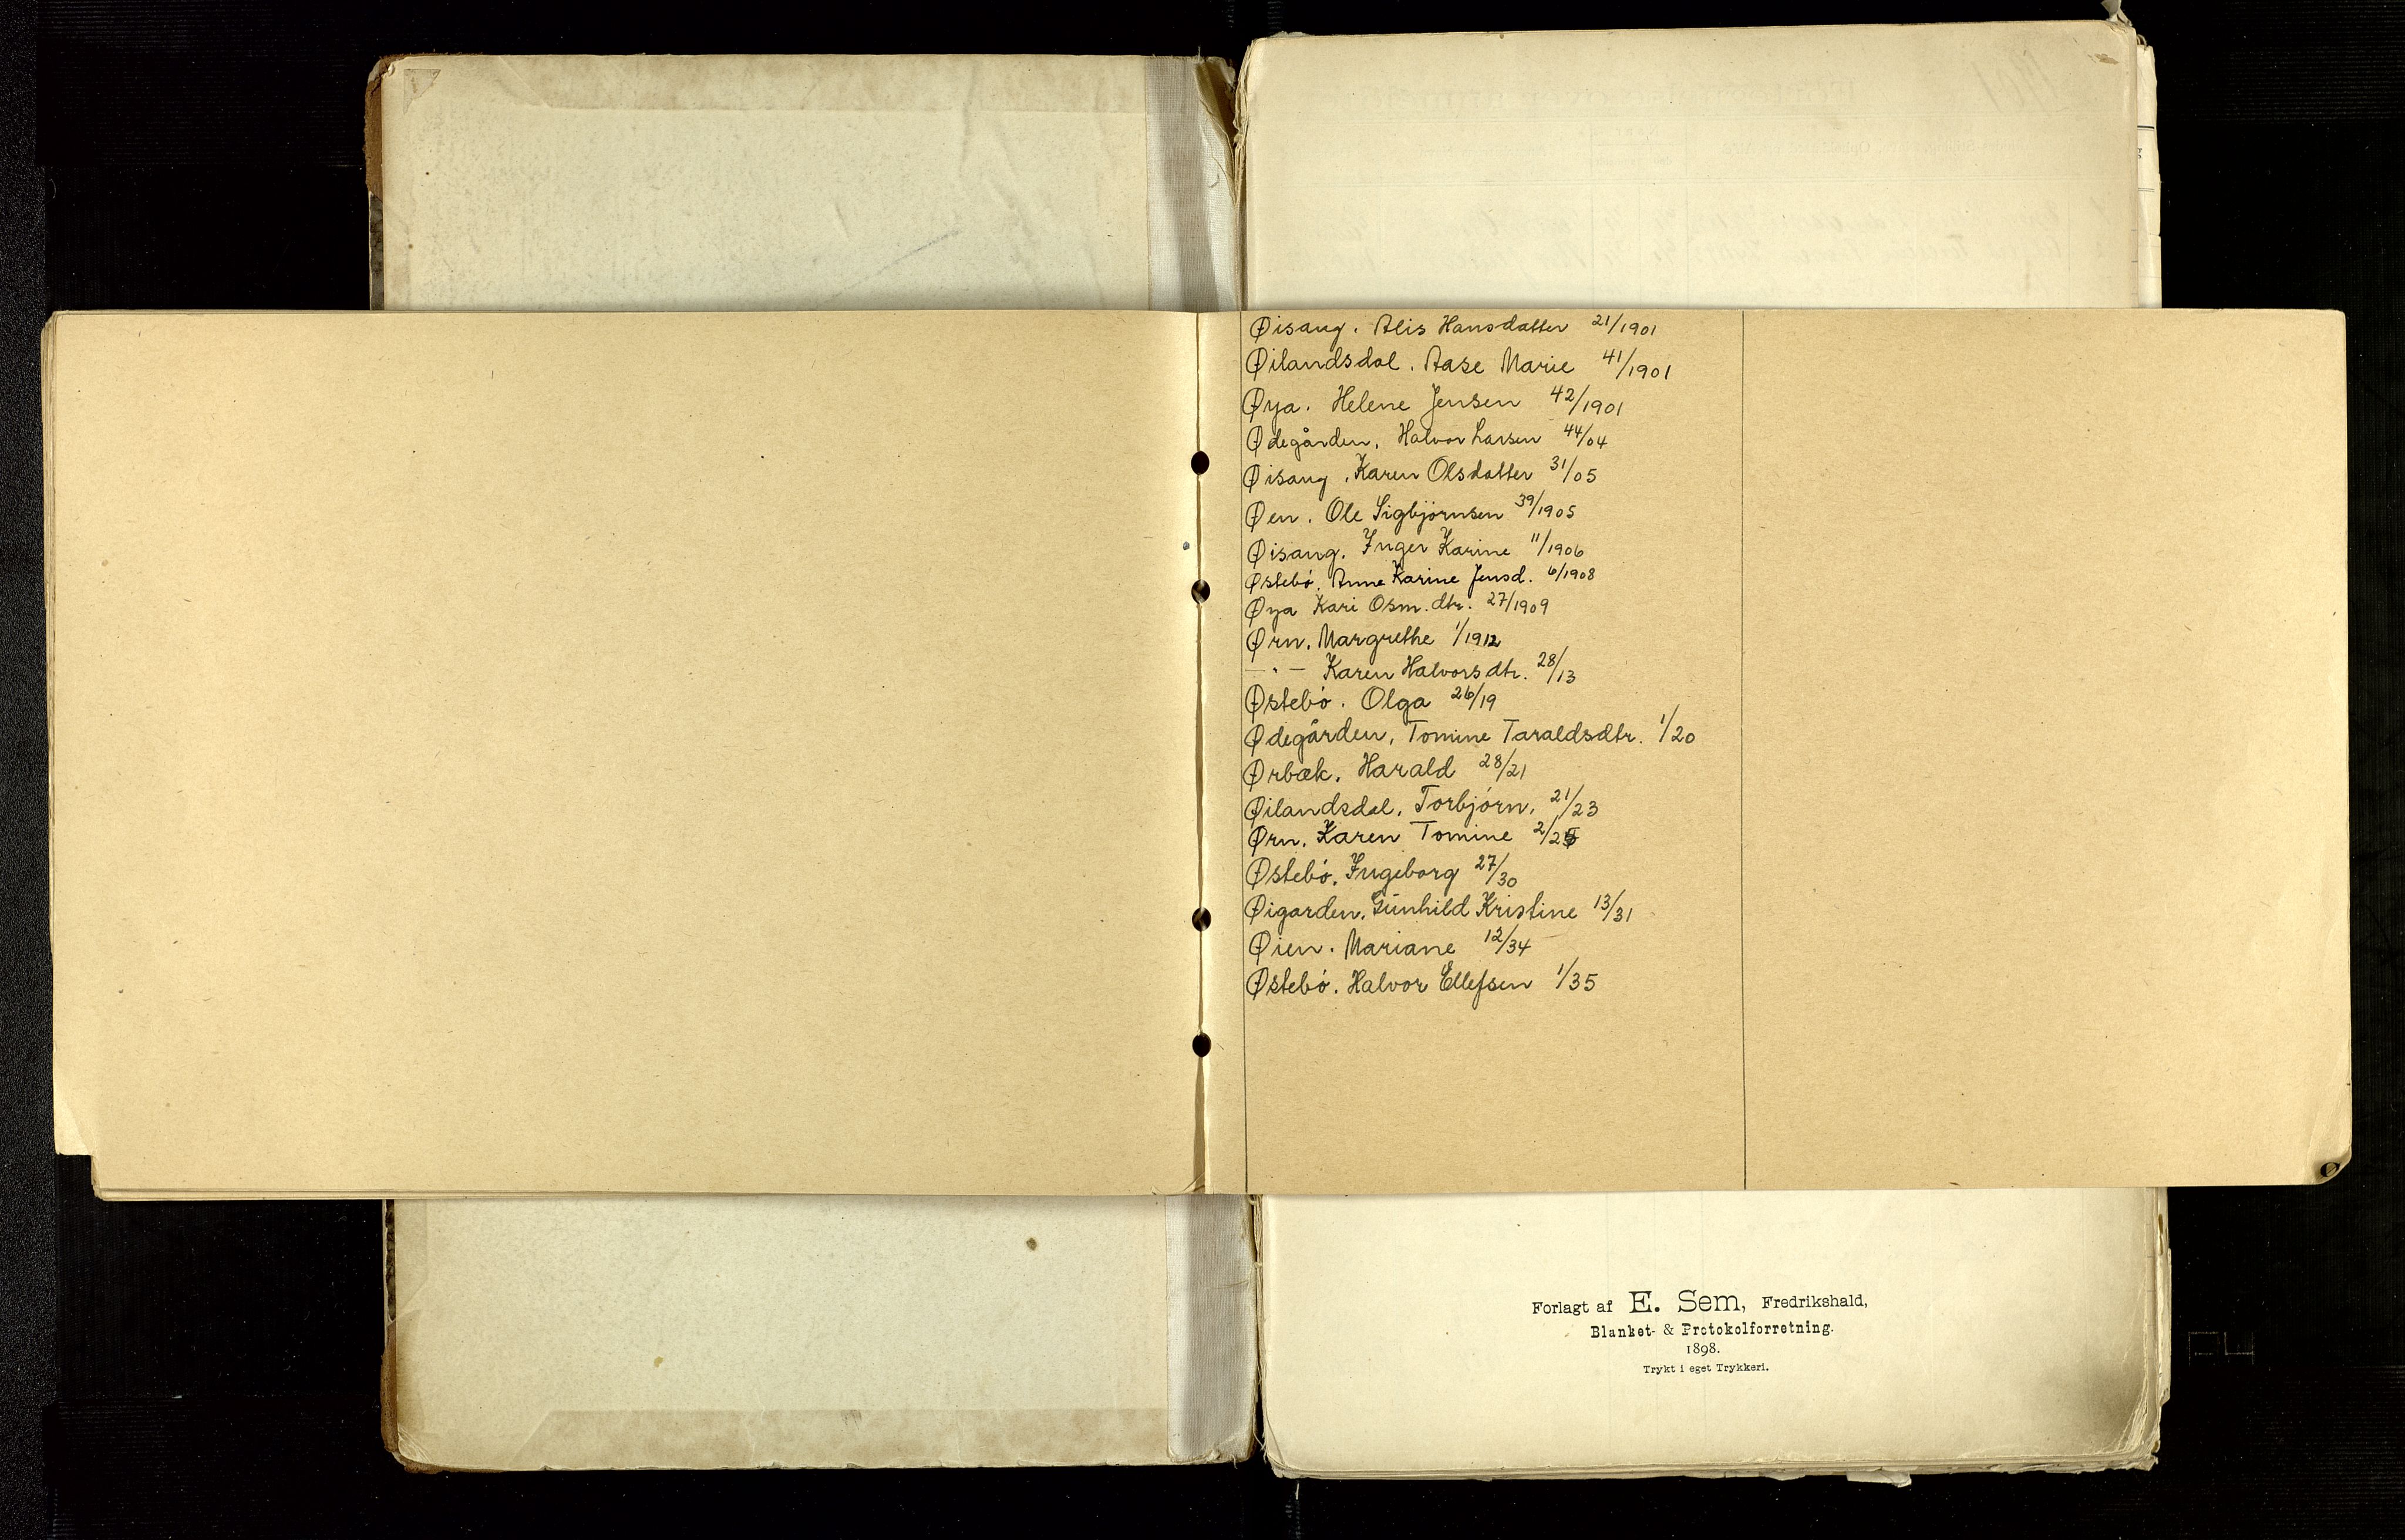 Øisang. Alis Hansdatter 21/1901
Øilandsdal. Aase Marie 41/1901
Øya. Helene Jensen 42/1901
Ødegården, Halvor Larsen 44/04
Øisang. Karen Olsdatter 31/05
Øen. Ole Sigbjørnsen 39/1905
Øisang. Inger Karine 11/1906
Østebó. Anne Karine Jensd. 6/1908
Øya Kari Osm. dtr. 27/1909
Ørn. Margrethe 1/1912
— " — Karen Halvorsdtr. 28/13
Østebó. Olga 26/19
Ødegården, Tomine Taraldsdtr. 1/20
Ørbæk. Harald 28/21
Øilandsdal. Torbjórn. 21/23
Ørn. Karen Tomine 2/25
Østebó. Ingeborg 27/30
Øigarden. Gunhild Kristine 13/31
Øien. Mariane 12/34
Østebó. Halvor Ellefsen 1/35
Ø
Forlagt af E. Sem, Fredrikshald,
Blanket- & Protokolforretning.
1898.
Trykt i eget Trykkeri.